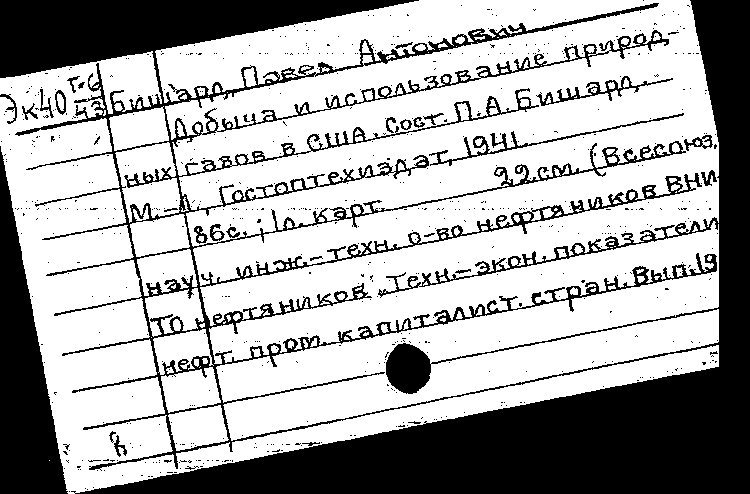 Эк40 Г-6
43
Бишард, Павел Антонович
Добыча и использование природ-
ных газов в США. Сост. П.А. Бишард.
М.-Л., Гостоптехиздат, 1941.
86с.; 1л. карт. 22см. (Всесоюз.
науч. инж.-техн. о-во нефтяников ВНИ
ТО нефтяников „Техн.-экон. показатели
нефт. пром. капиталист. стран. Вып.19
в